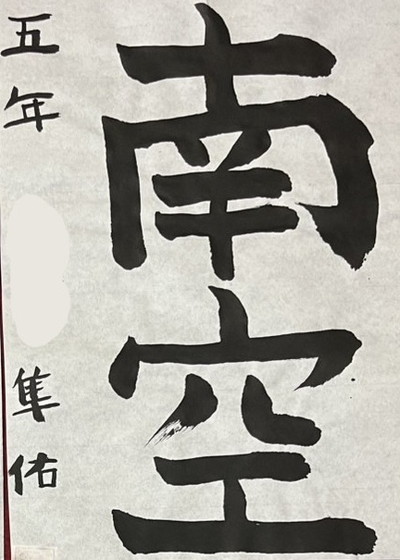 南空
五年 隼佑